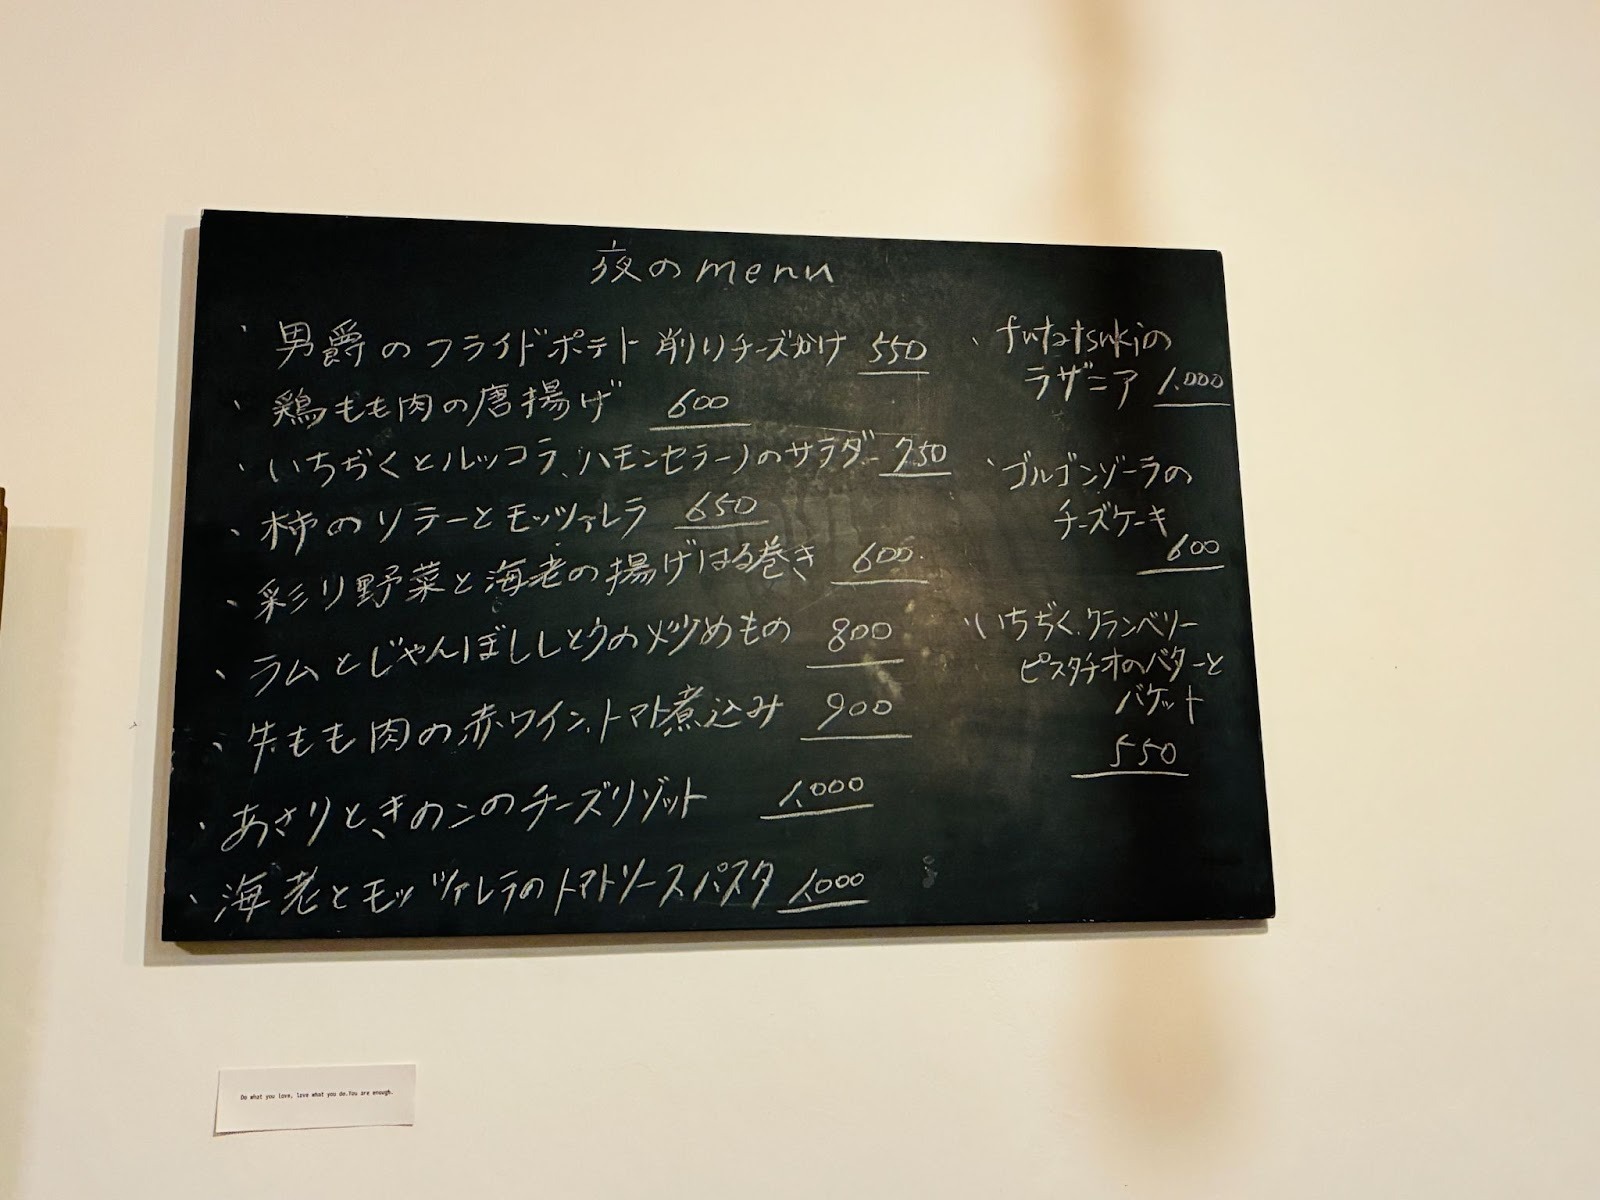 夜のmenu
、男爵のフライドポテト 削りチーズかけ 550
、鶏もも肉の唐揚げ 600
、いちぢくとルッコラ、ハモンセラーノのサラダ 750
、柿のソテーとモッツァレラ 650
、彩り野菜と海老の揚げはる巻き 600
、ラムとじゃんぼししとうの炒めもの 800
、牛もも肉の赤ワイン、トマト煮込み 900
、あさりときのこのチーズリゾット 1,000
、海老とモッツァレラのトマトソースパスタ 1,000
、futatsukiの
ラザニア 1,000
、ゴルゴンゾーラの
チーズケーキ
600
、いちぢく、クランベリー
ピスタチオのバターと
バケット
550
Do what you love, love what you do.You are enough.